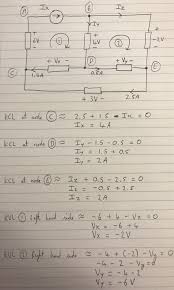 A
Ix
B
Iz
Iy
6V
1
4V
2
-2V
C
+ Vx -
D
+ Vy -
E
1.5A
0.5A
+ 3V -
2.5A
KCL at node C ≈ 2.5 + 1.5 - Ix = 0
Ix = 4A
KCL at node D ≈ Iy - 1.5 - 0.5 = 0
Iy = 1.5 + 0.5
Iy = 2A
KCL at node E ≈ Iz + 0.5 - 2.5 = 0
Iz = -0.5 + 2.5
Iz = 2A
KVL 1 Left hand side ≈ -6 + 4 - Vx = 0
Vx = -6 + 4
Vx = -2V
KVL 2 Right hand side ≈ -4 + (-2) - Vy = 0
-4 - 2 - Vy = 0
Vy = -4 - 2
Vy = -6V